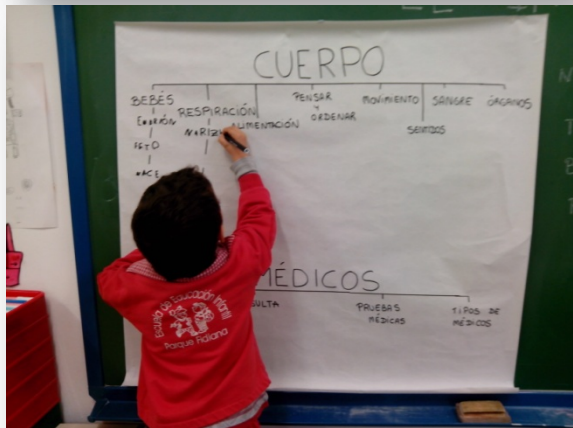 CUERPO
BEBÉS
EMBRIÓN
FETO
NACE
RESPIRACIÓN
NARIZ
ALIMENTACIÓN
PENSAR
Y
ORDENAR
MOVIMIENTO
SENTIDOS
SANGRE
ÓRGANOS
MÉDICOS
PRUEBAS
MÉDICAS
TIPOS DE
MÉDICOS
Escuela de Educación Infantil
Parque Fidiana